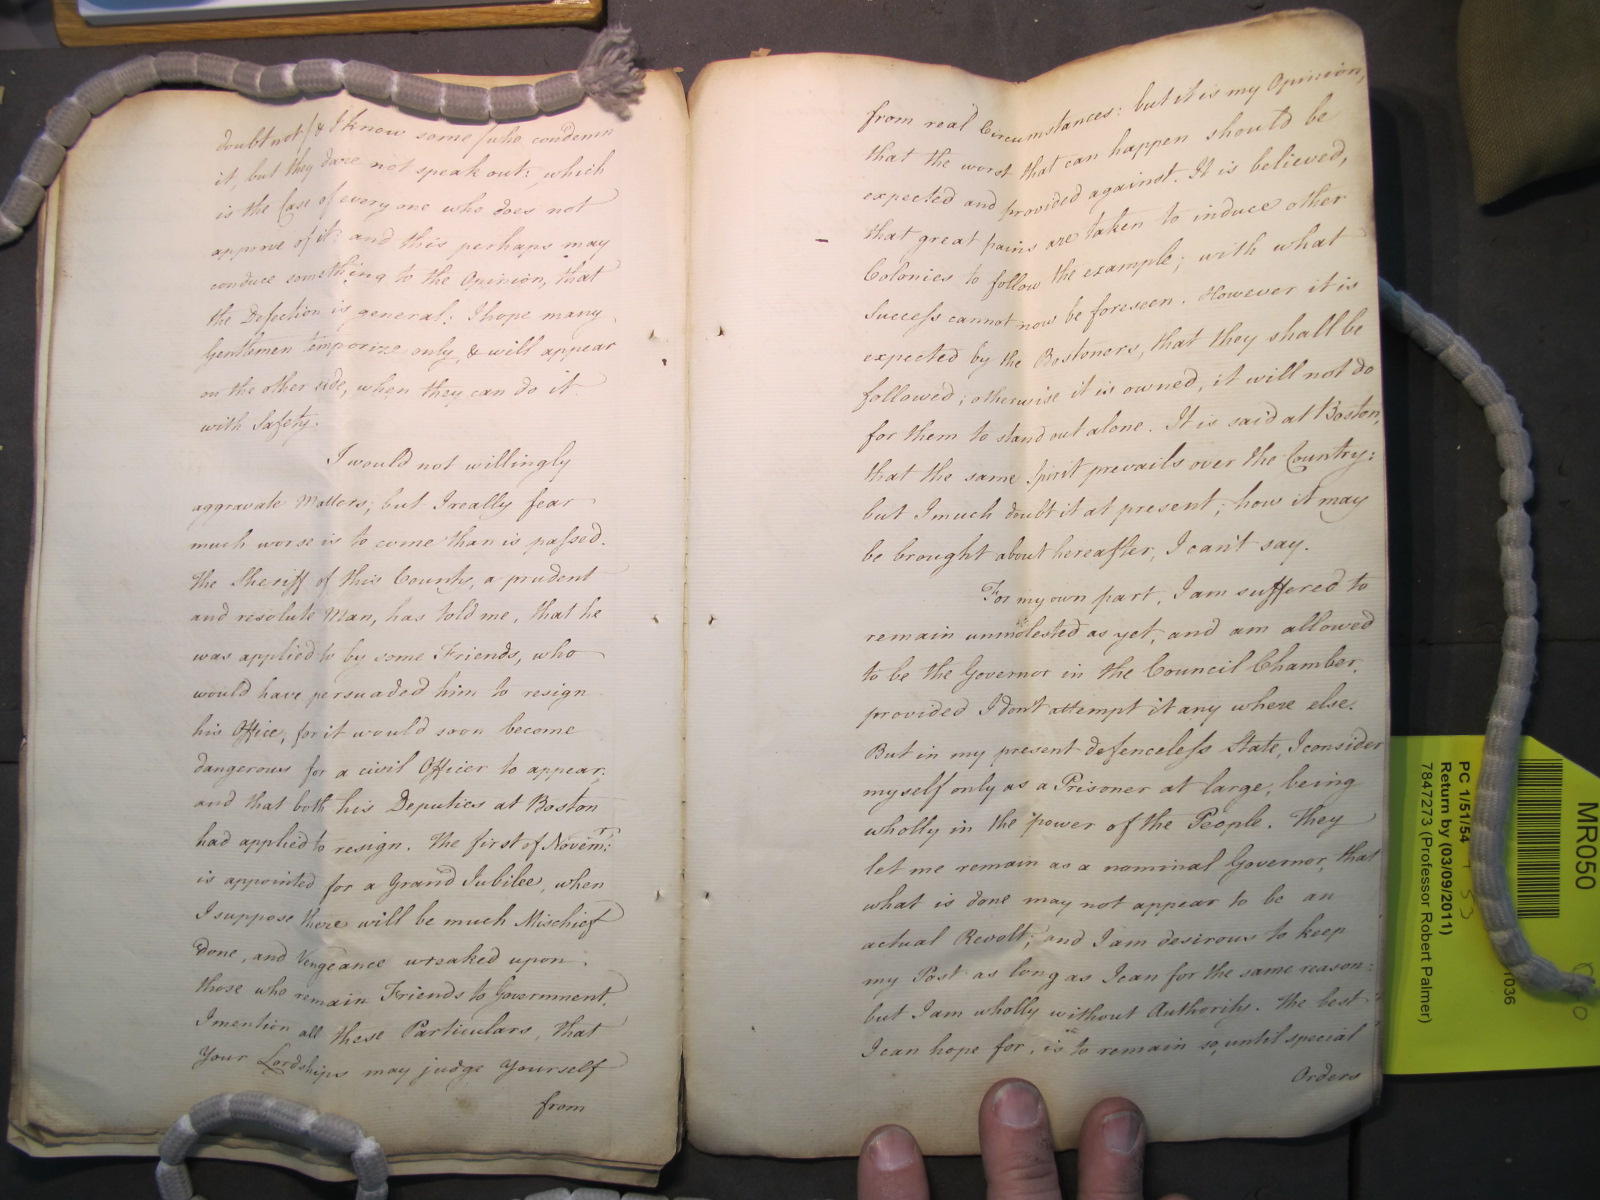 doubt not (& I know some) who condemn
it, but they dare not speak out: which
is the Case of every one who does not
approve of it: and this perhaps may
conduce something to the Opinion, that
the Defection is general: I hope many
Gentlemen temporize only, & will appear
on the other side, when they can do it
with Safety.
I would not willingly
aggravate Matters; but I really fear
much worse is to come than is passed.
the Sheriff of this County, a prudent
and resolute Man, has told me, that he
was applied to by some Friends, who
would have persuaded him to resign
his Office, for it would soon become
dangerous for a civil Officer to appear:
and that both his Deputies at Boston
had applied to resign. The first of Novemr:
is appointed for a Grand Jubilee, when
I suppose there will be much Mischief
done, and Vengeance wreaked upon
those who remain Friends to Government.
I mention all these Particulars, that
Your Lordships may judge Yourself
from
from real Circumstances: but it is my Opinion,
that the worst that can happen should be
expected and provided against. It is believed,
that great pains are taken to induce other
Colonies to follow the example; with what
Success cannot now be foreseen. However it is
expected by the Bostoners, that they shall be
followed; otherwise it is owned, it will not do
for them to stand out alone. It is said at Boston,
that the same Spirit prevails over the Country:
but I much doubt it at present; how it may
be brought about hereafter, I can't say.
For my own part, I am suffered to
remain unmolested as yet, and am allowed
to be the Governor in the Council Chamber,
provided I don't attempt it any where else.
But in my present defenceless State, I consider
myself only as a Prisoner at large, being
wholly in the power of the People. They
let me remain as a nominal Governor, that
what is done may not appear to be an
actual Revolt; and I am desirous to keep
my Post as long as I can for the same reason:
but I am wholly without Authority. the best
I can hope for, is to remain so, until special
Orders
MR050
PC 1/51/54
Return by (03/09/2011)
7847273 (Professor Robert Palmer)
1036